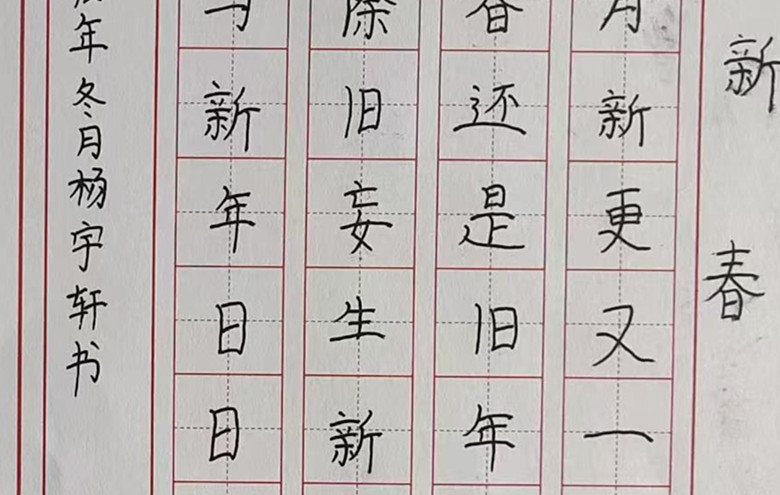 新春
月新更又一
春还是旧年
除旧妄生新
与新年日日
年冬月杨宇轩书